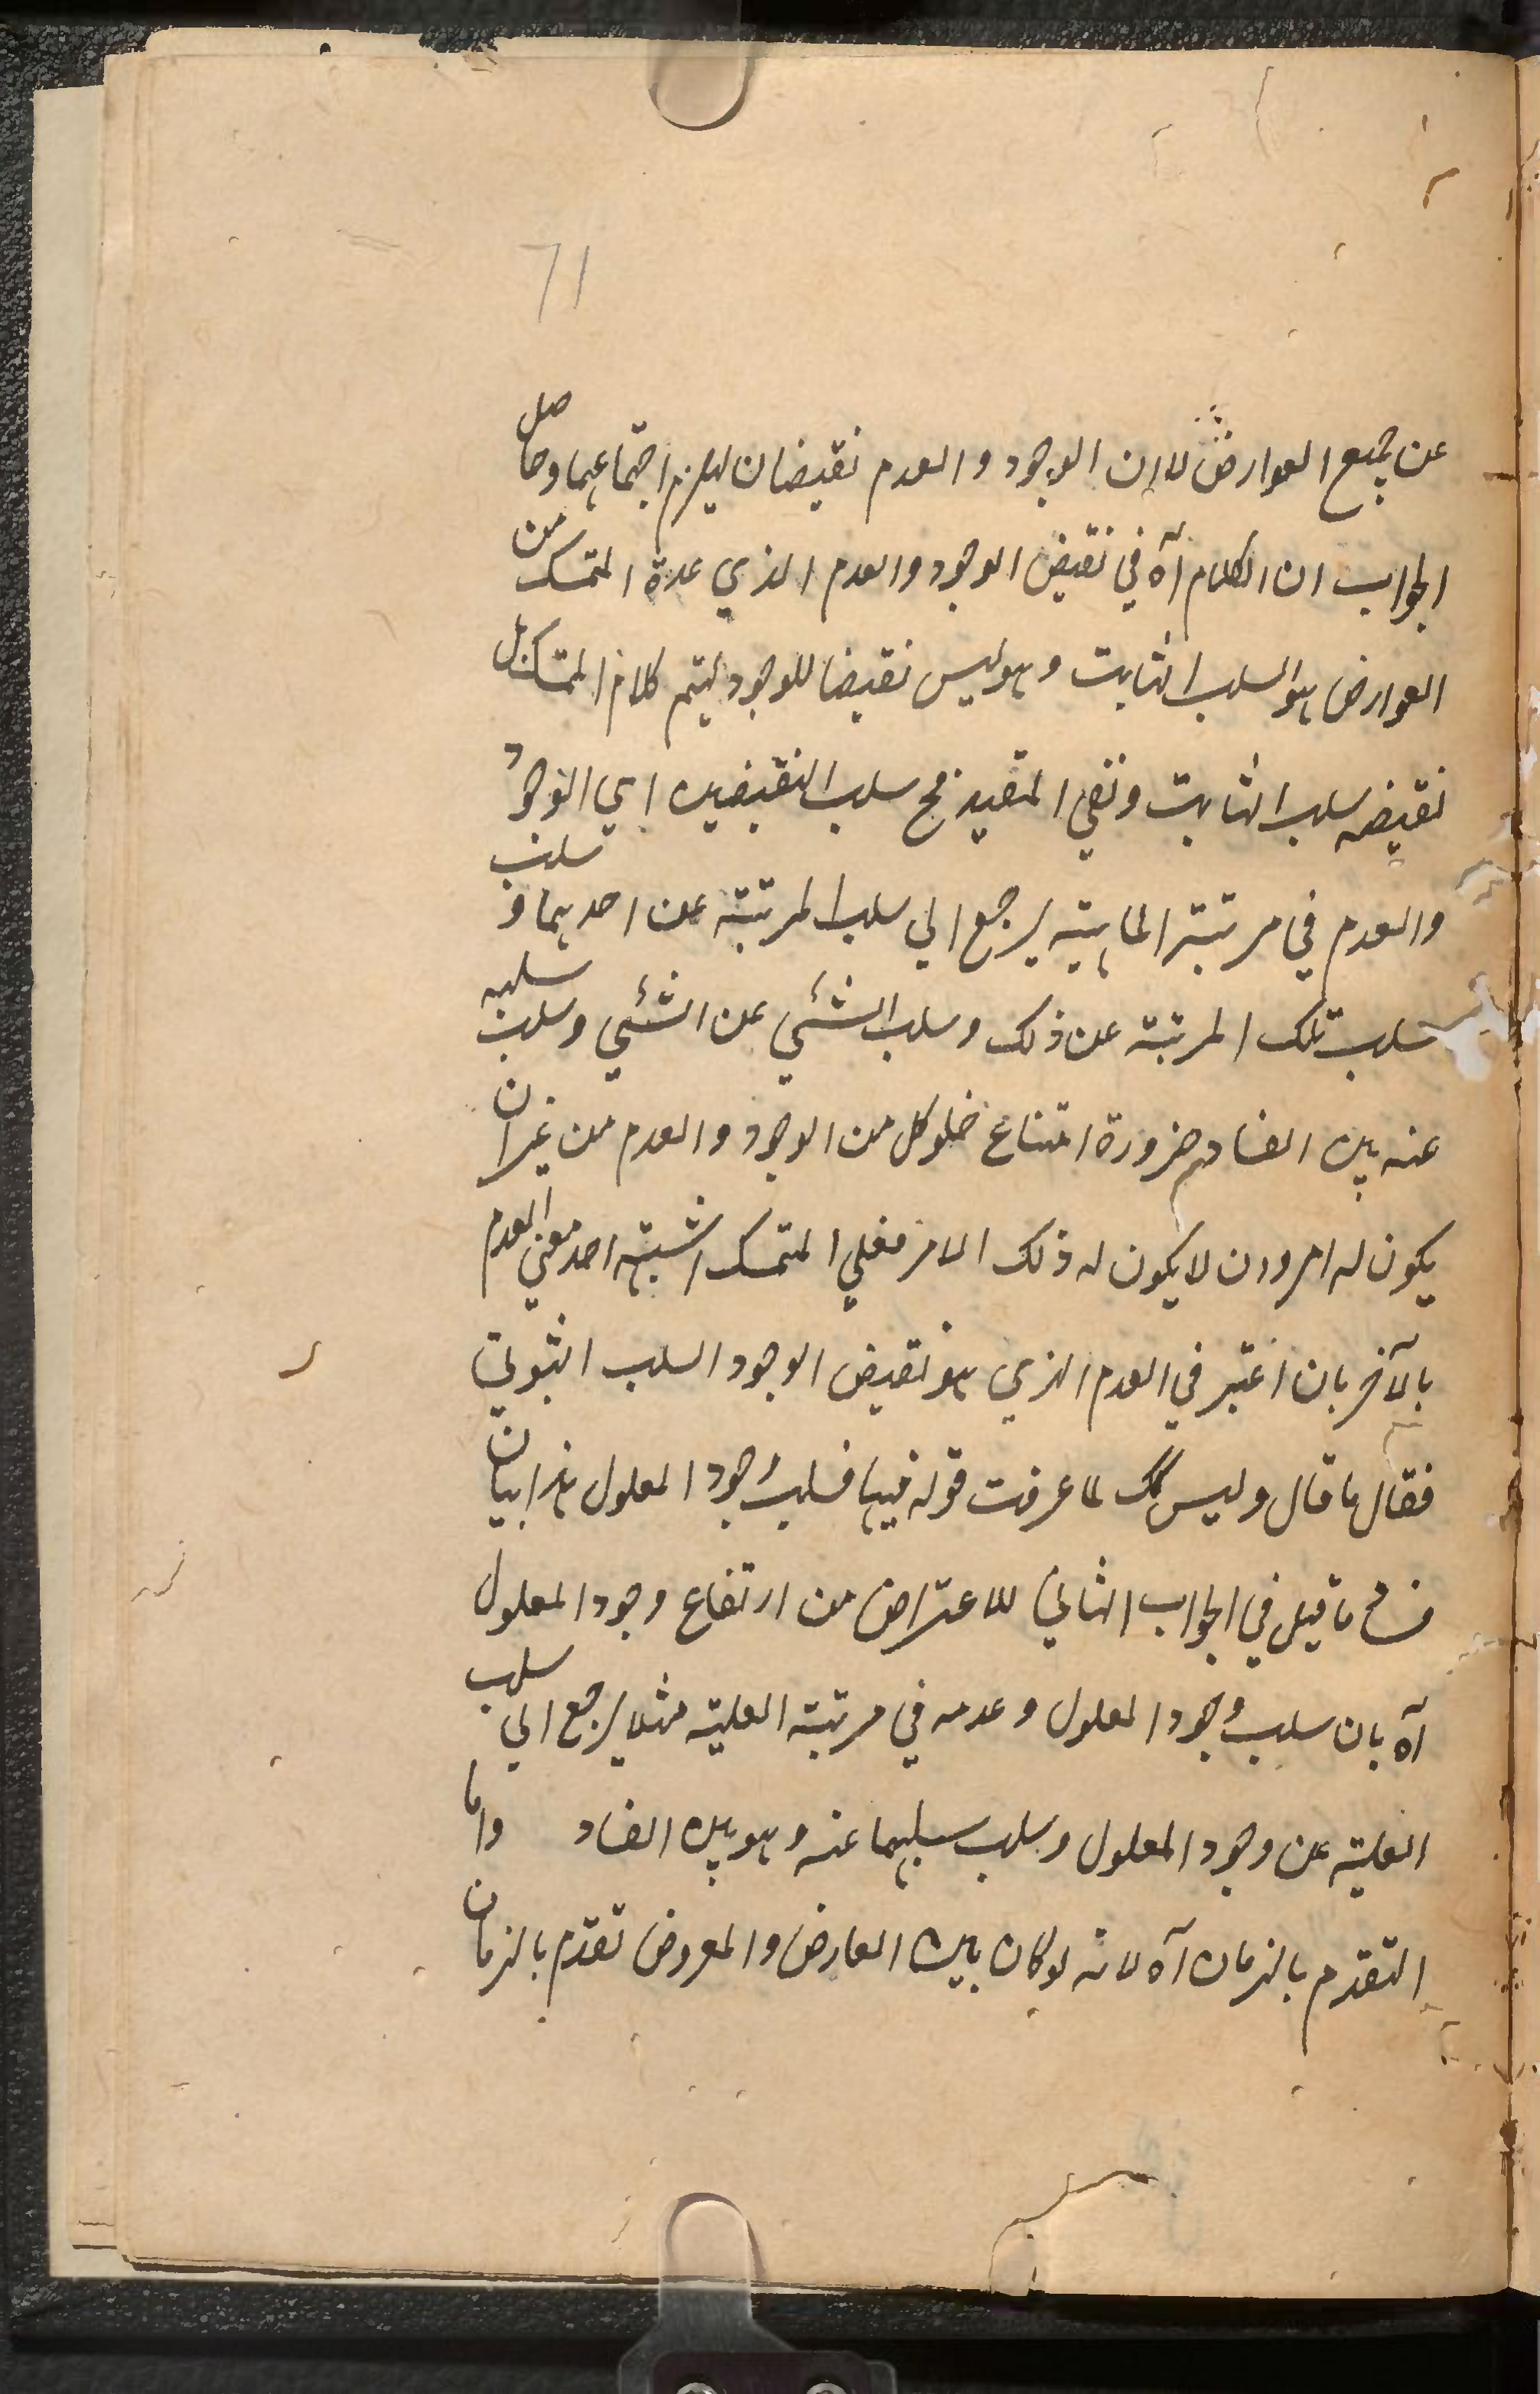 71
عن جميع العوارض لا ان الوجود و العدم نقيضان ليلزم اجتماعهما وحاصل
الجواب ان الكلام آه في نقيض الوجود والعدم الذي عده المتمسك من
العوارض هو السلب الثابت و هو ليس نقيضا للوجود ليتم كلام المتمسك بل
نقيضه سلب الثابت ونفي المقيد فح سلب النقيضين اي الوجود
والعدم في مرتبة الماهية يرجع الي سلب المرتبة عن احدهما و سلب
سلب تلك المرتبة عن ذلك وسلب الشئي عن الشئي وسلب سلبه
عنه بين الفساد ضرورة امتناع خلو كل من الوجود والعدم من غير ان
يكون له امر وان لا يكون له ذلك الامر فعلي المتمسك اشتبه احد معني العدم
بالآخر بان اعتبر في العدم الذي هو نقيض الوجود السلب الثبوتي
فقال ما قال وليس كك لما عرفت قوله فيها فسلب وجود المعلول هذا بيان
فساد ما قيل في الجواب الثاني للاعتراض من ارتفاع وجود المعلول
آه بان سلب وجود المعلول و عدمه في مرتبة العلية مثلا يرجع الي سلب
العلية عن وجود المعلول وسلب سلبهما عنه وهو بين الفساد واما
التقدم بالزمان آه لانه لو كان بين العارض والمعروض تقدم بالزمان